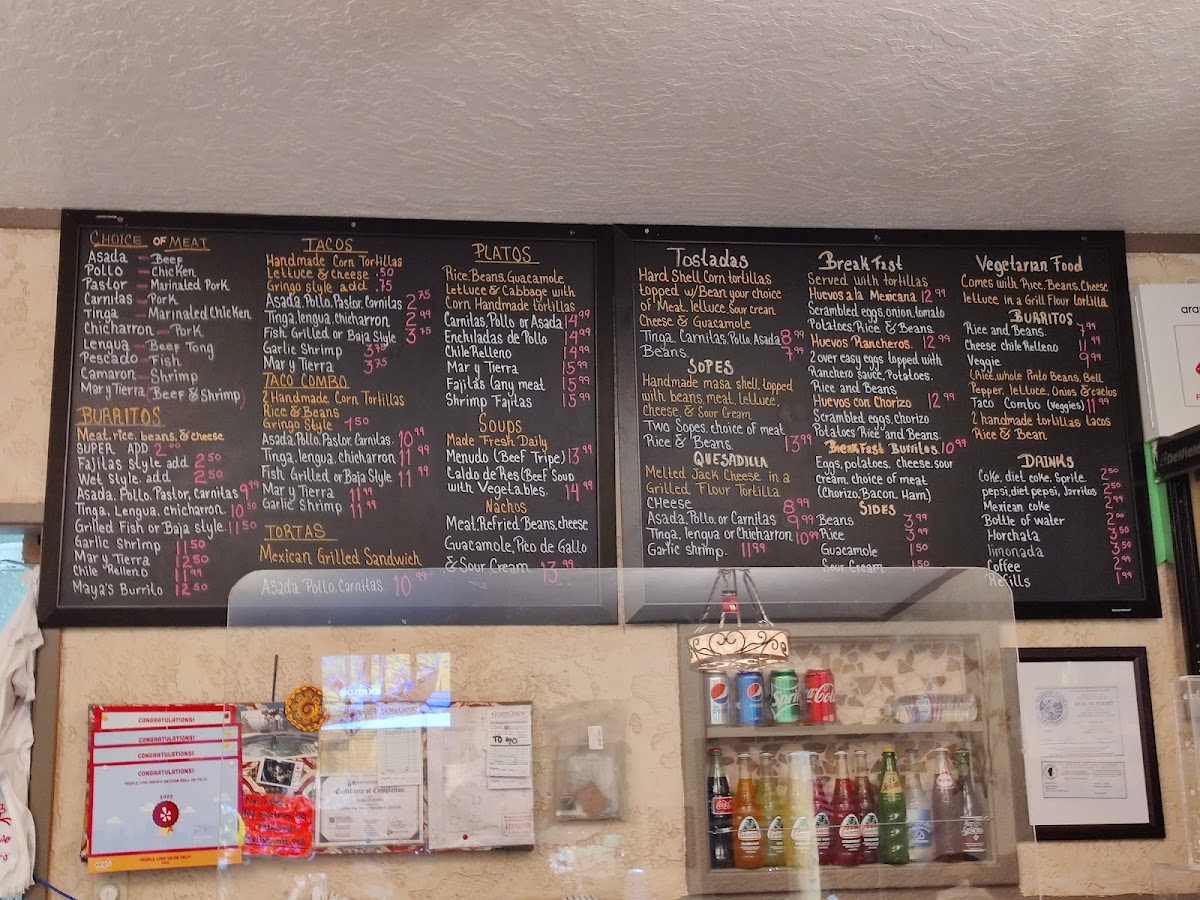 CHOICE OF MEAT
Asada - Beef
Pollo - Chicken
Pastor - Marinated Pork
Carnitas - Pork
Tinga - Marinated Chicken
Chicharron - Pork
Lengua - Beef Tong
Pescado - Fish
Camaron - Shrimp
Mar y Tierra (Beef & Shrimp)
BURRITOS
Meat, rice, beans, & cheese
SUPER ADD 2.00
Fajitas style add 2.50
Wet style add 2.50
Asada, Pollo, Pastor, carnitas 9.99
Tinga, Lengua, chicharron 10.50
Grilled Fish or Baja style. 11.50
Garlic Shrimp 11.50
Mar y Tierra 12.50
Chile Relleno 11.99
Maya's Burrito 12.50
TACOS
Handmade Corn Tortillas
Lettuce & Cheese .50
Gringo style add .75
Asada, Pollo, Pastor, Carnitas 2.75
Tinga, lengua, chicharron 2.99
Fish Grilled or Baja Style 3.75
Garlic Shrimp 3.75
Mar y Tierra 3.75
TACO COMBO
2 Handmade Corn Tortillas
Rice & Beans
Gringo Style 1.50
Asada, Pollo, Pastor, Carnitas. 10.99
Tinga, lengua, chicharron 11.99
Fish, Grilled or Baja Style 11.99
Mar y Tierra 11.99
Garlic Shrimp 11.99
TORTAS
Mexican Grilled Sandwich
Asada, Pollo, Carnitas 10.99
PLATOS
Rice, Beans, Guacamole
Lettuce & Cabbage with
Corn Handmade tortillas
Carnitas, Pollo or Asada 14.99
Enchiladas de Pollo 14.99
Chile Relleno 14.99
Mar y Tierra 15.99
Fajitas (any meat 15.99
Shrimp Fajitas 15.99
SOUPS
Made Fresh Daily
Menudo (Beef Tripe) 13.99
Caldo de Res (Beef Soup
with Vegetables. 14.99
Nachos
Meat, Refried Beans, cheese
Guacamole, Pico de Gallo
& Sour Cream 13.99
Tostadas
Hard Shell Corn tortillas
topped w/Bean your choice
of Meat, lettuce, sour crean
Cheese & Guacamole
Tinga, Carnitas, Pollo, Asada 8.99
Beans. 7.99
SOPES
Handmade masa shell, topped
with beans, meat, lettuce,
cheese, & Sour Cream
Two Sopes, choice of meat
Rice & Beans 13.99
QUESADILLA
Melted Jack Cheese in a
Grilled Flour Tortilla
CHeese 8.99
Asada, Pollo, or Carnitas 9.99
Tinga, lengua or Chicharron 10.99
Garlic shrimp. 11.99
BreakFast
Served with tortillas
Huevos a la Mexicana 12.99
Scrambled eggs, onion, tomato
Potatoes, Rice & Beans
Huevos Rancheros. 12.99
2 over easy eggs topped with
Ranchero sauce, Potatoes,
Rice and Beans
Huevos con Chorizo 12.99
Scrambled eggs, Chorizo
Potatoes Rice and Beans
BreakFast Burritos 10.99
Eggs, potatoes, cheese, sour
cream, choice of meat
(Chorizo, Bacon, Ham)
SIDES
Beans 3.99
Rice 3.99
Guacamole 1.50
Sour Cream 1.50
Vegetarian Food
Comes with Rice, Beans, Cheese
lettuce in a Grill Flour tortilla
BURRITOS
Rice and Beans. 7.99
Cheese chile Relleno 11.99
Veggie 9.99
(Rice, whole Pinto Beans, Bell
Pepper, lettuce, Onios & cactus
Taco Combo (Veggies) 11.99
2 handmade tortillas tacos
Rice & Bean
DRINKS
Coke, diet coke, Sprite. 2.50
pepsi, diet pepsi, Jarritos 2.50
Mexican coke 2.99
Bottle of water 2.00
Horchata 3.50
limonada 3.50
Coffee 2.99
Refills 1.99
CONGRATULATIONS!
CONGRATULATIONS!
CONGRATULATIONS!
CONGRATULATIONS!
2022
"PEOPLE LOVE US ON YELP"
Certificate of Completion
TO GO
pepsi
Sprite
Coca-Cola
Coca-Cola
Jarritos
Jarritos
HEALTH PERMIT